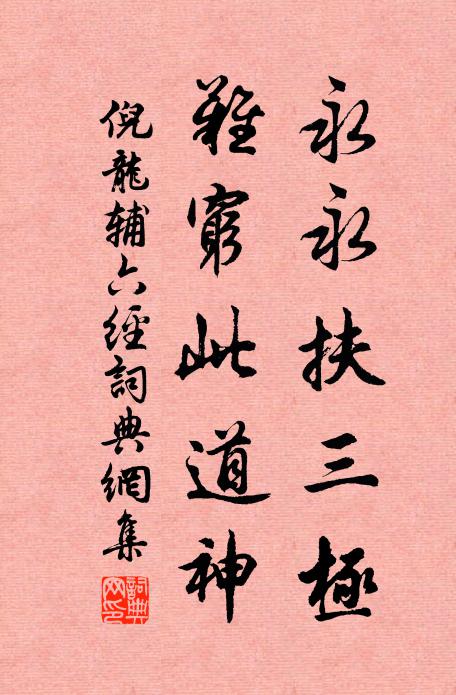 永永扶三極
難窮此道神
倪龍輔六經詞典網集
詞典網印